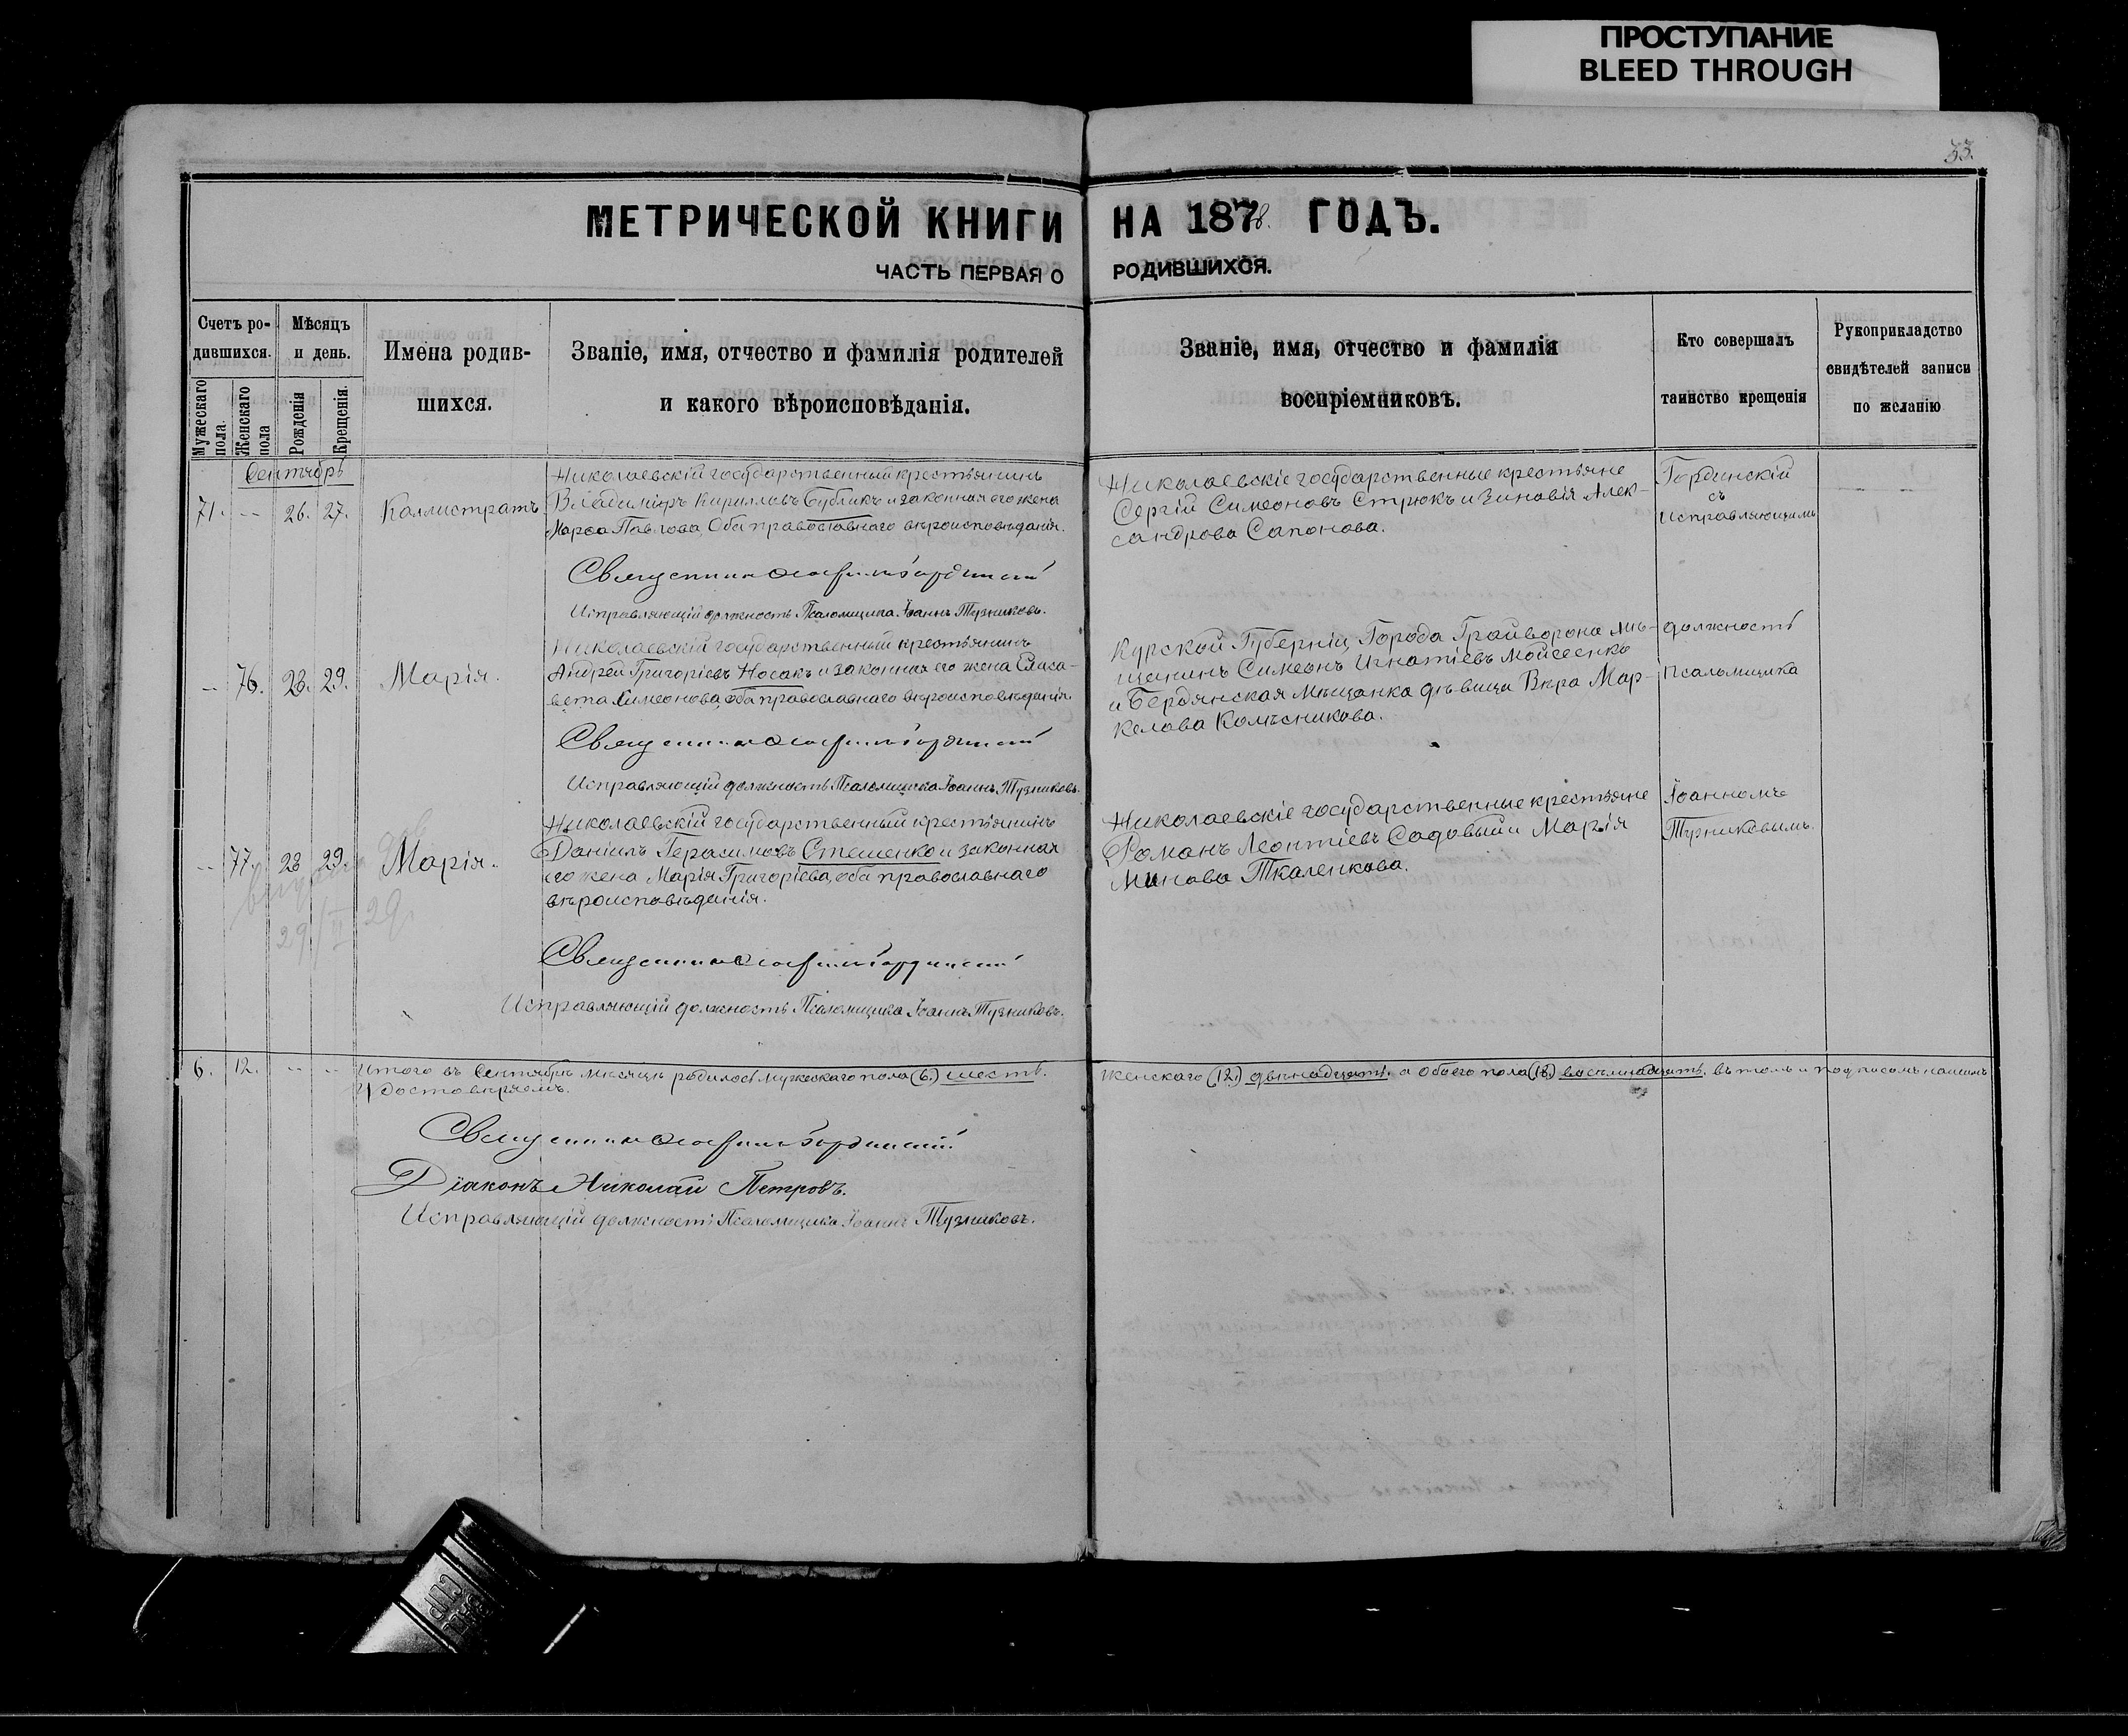 ПРОСТУПАНИЕ
BLEED THROUGH
33.
МЕТРИЧЕСКОЙ КНИГИ НА 1878. ГОДЪ.
ЧАСТЬ ПЕРВАЯ О РОДИВШИХСЯ.
Счетъ ро-
дившихся.
Мужескаго
пола.
Женскаго
пола
Мѣсяцъ
и день.
Рожденія
Крещенія.
Имена родив-
шихся.
Званіе, имя, отчество и фамилія родителей
и какого вѣроисповѣданія.
Званіе, имя, отчество и фамилія
воспріемниковъ.
Кто совершалъ
таинство крещенія
Рукоприкладство
свидѣтелей записи
по желанію
Сентябрь
71. -- 26. 27. Каллистратъ
Николаевскій государственный крестьянинъ
Владиміръ Кирилловъ Бубликъ и законная его жена
Марѳа Павлова, Оба православнаго вѣроисповѣданія.
Николаевскіе государственные крестьяне
Сергій Симеоновъ Стрюкъ и Зиновія Алек-
сандрова Сапонова.
Гординскій
съ
исправляющимъ
Священникъ Гординскій
Исправляющій должность Псаломщика Іоаннъ Тузниковъ.
-- 76. 28. 29. Марія.
Николаевскій государственный крестьянинъ
Андрей Григоріевъ Носакъ и законная его жена Елиса-
вета Симеонова, оба православнаго вѣроисповѣданія.
Курской Губерніи, Города Грайворона мѣ-
щанинъ Симеонъ Игнатіевъ Мойсеенко
и Бердянская мѣщанка дѣвица Вѣра Мар-
келова Колѣсникова.
должность
Псаломщика
Священникъ Гординскій
Исправляющій должность Псаломщика Іоаннъ Тузниковъ.
-- 77. 28 29. Марія.
Николаевскій государственный крестьянинъ
Даніилъ Герасимовъ Стешенко и законная
его жена Марія Григоріева, оба православнаго
вѣроисповѣданія.
Николаевскіе государственные крестьяне
Романъ Леонтіевъ Садовый и Марія
Минова Ткаленкова.
Іоанномъ
Тузниковымъ.
29/II 29
Священникъ Гординскій
Исправляющій должность Псаломщика Іоаннъ Тузниковъ.
6. 12. -- -- Итого въ Сентябрѣ мѣсяцѣ родилось мужескаго пола (6.) шесть. женскаго (12.) двѣнадцать. а обоего пола (18.) восѣмнадцать. въ томъ и подписомъ нашимъ
Удостовѣряемъ.
Священникъ Гординскій
Діаконъ Николай Петровъ.
Исправляющій должность Псаломщика Іоаннъ Тузниковъ.